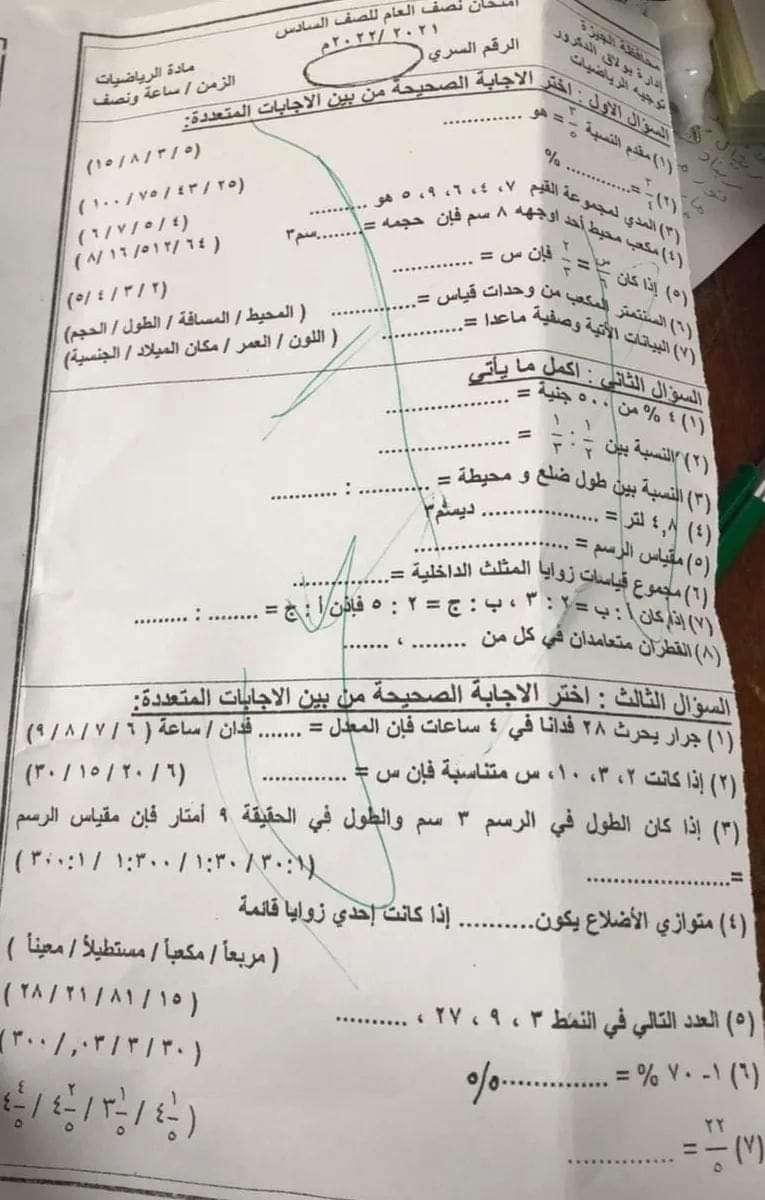 محافظة الجيزة
إدارة بولاق الدكرور
توجيه الرياضيات
امتحان نصف العام للصف السادس
٢٠٢١ / ٢٠٢٢م
الرقم السري
مادة الرياضيات
الزمن / ساعة ونصف
السؤال الاول : اختر الاجابة الصحيحة من بين الاجابات المتعددة:
(١) مقدم النسبة ٣/٥ = هو ............ (٥ / ٣ / ٨ / ١٥)
(٢) ٣/٤ = ............ % (٢٥ / ٤٣ / ٧٥ / ١٠٠)
(٣) المدي لمجموعة القيم ٧، ٤، ٦، ٩، ٥ هو ............ (٤ / ٥ / ٧ / ٦)
(٤) مكعب محيط أحد اوجهه ٨ سم فإن حجمه = ........سم٣ (٦٤ /٥١٢ / ١٦ /٨)
(٥) إذا كان س/٦ = ٢/٣ فإن س = ............ (٢ / ٣ / ٤ /٥)
(٦) السنتمتر المكعب من وحدات قياس =............ (المحيط / المسافة / الطول / الحجم)
(٧) البيانات الآتية وصفية ماعدا =............ (اللون / العمر / مكان الميلاد / الجنسية)
السؤال الثاني : اكمل ما يأتي
(١) ٤ % من ٥٠٠ جنية = ................
(٢) النسبة بين ١/٢ : ١/٣ = ................
(٣) النسبة بين طول ضلع و محيطة = .......... : ..........
(٤) ٤,٨ لتر = ................ ديسم٣
(٥) مقياس الرسم = ....................
(٦) مجموع قياسات زوايا المثلث الداخلية =............
(٧) إذا كان أ : ب = ٢ : ٣ ، ب : ج = ٢ : ٥ فإذن أ : ج = ........ : ..........
(٨) القطران متعامدان في كل من ........ ، ........
السؤال الثالث : اختر الاجابة الصحيحة من بين الاجابات المتعددة:
(١) جرار يحرث ٢٨ فدانا في ٤ ساعات فإن المعدل = ....... فدان / ساعة ( ٦ / ٧ / ٨ / ٩)
(٢) إذا كانت ٢، ٣، ١٠، س متناسبة فإن س = ............ (٦ / ٢٠ / ١٥ / ٣٠)
(٣) إذا كان الطول في الرسم ٣ سم والطول في الحقيقة ٩ أمتار فإن مقياس الرسم
=.................... (٣٠:١ / ١:٣٠ / ١:٣٠٠ / ٣٠٠:١ )
(٤) متوازي الأضلاع يكون.......... إذا كانت إحدي زوايا قائمة
( مربعاً / مكعباً / مستطيلاً / معيناً )
(٥) العدد التالي في النمط ٣ ، ٩ ، ٢٧ ، .......... (١٥ / ٨١ / ٢١ / ٢٨ )
(٦) ١- ٧٠ % = ...............% (٣٠ / ٣ / ٠٣, / ٣٠٠)
(٧) ٢٢/٥ = ............... ( ٤ ١/٥ / ٣ ١/٥ / ٤ ٢/٥ / ٤ ٤/٥